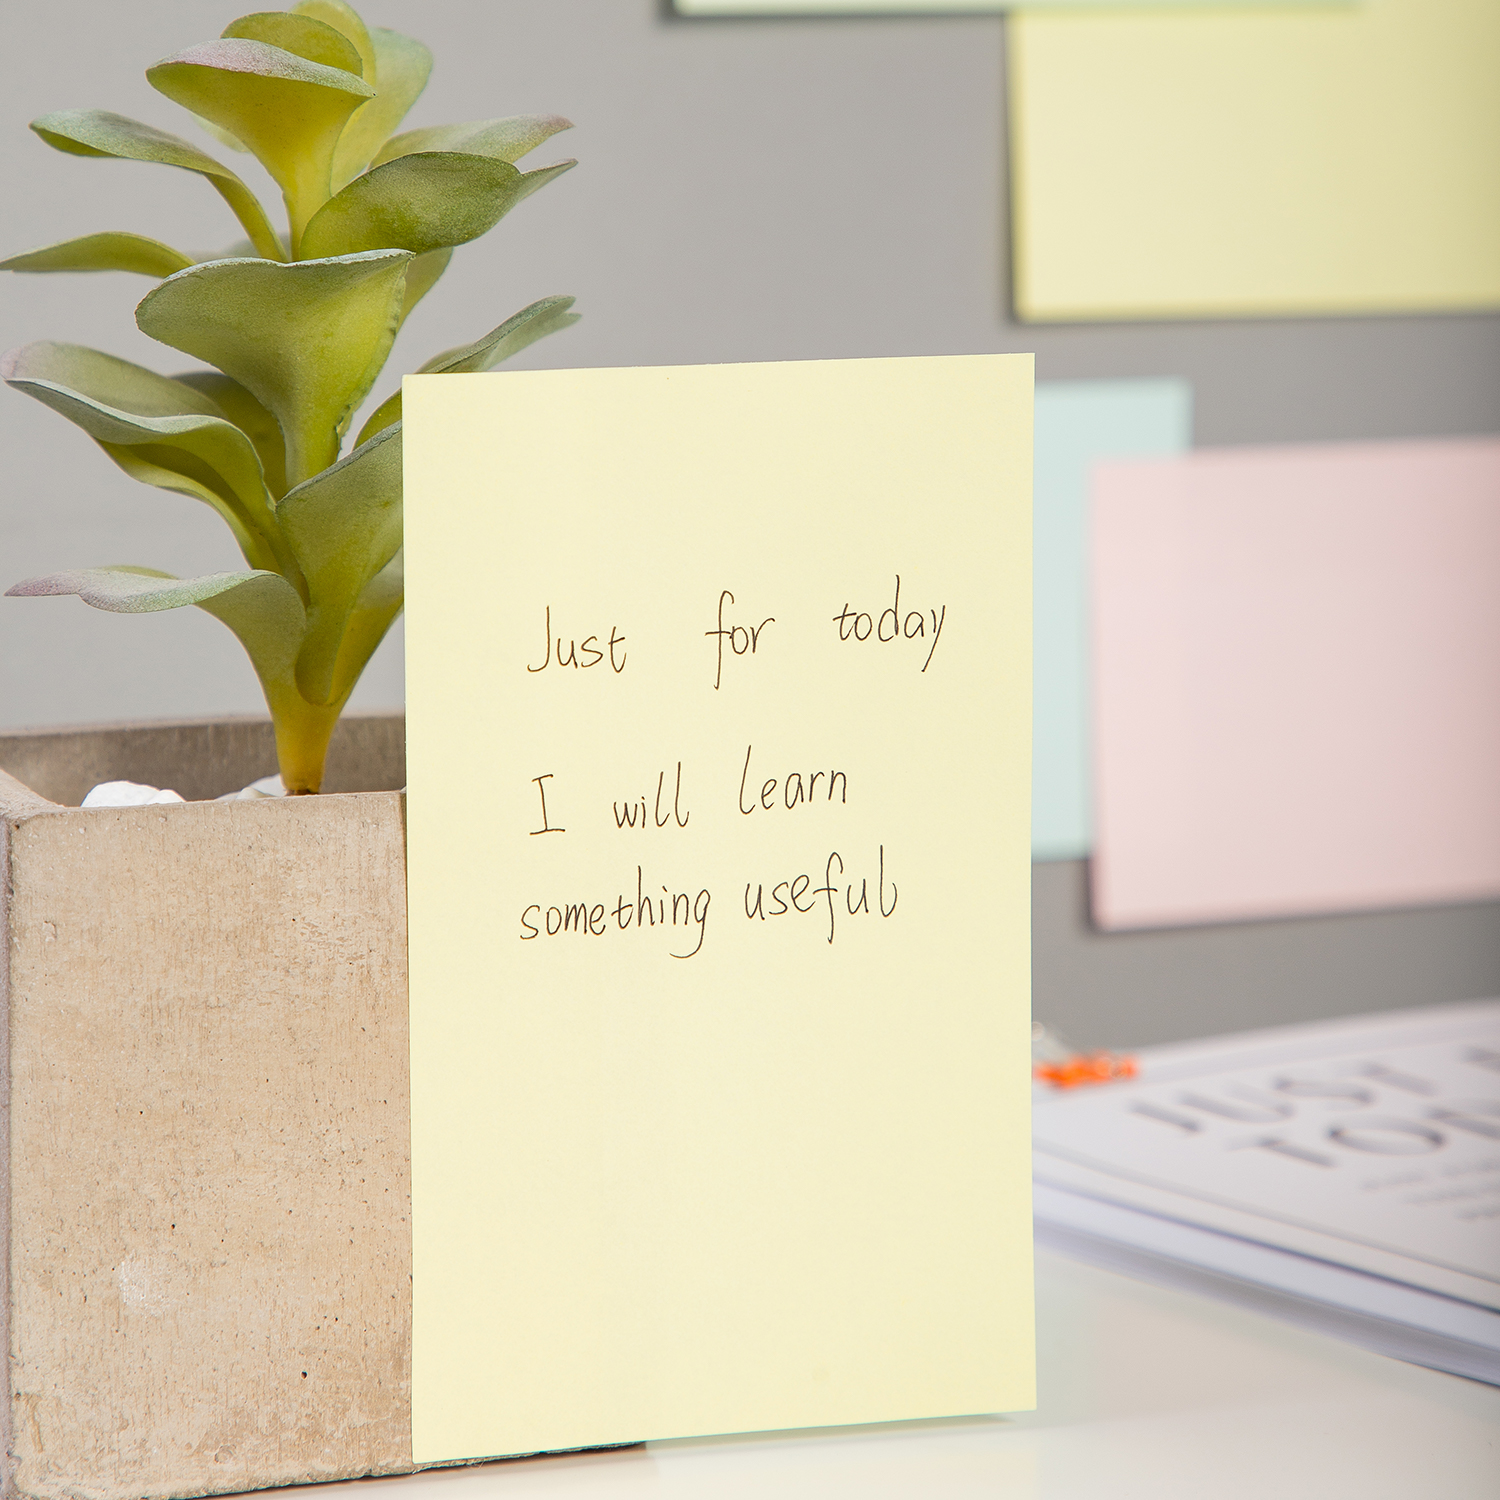 Just for today
I will learn
something useful
JUST